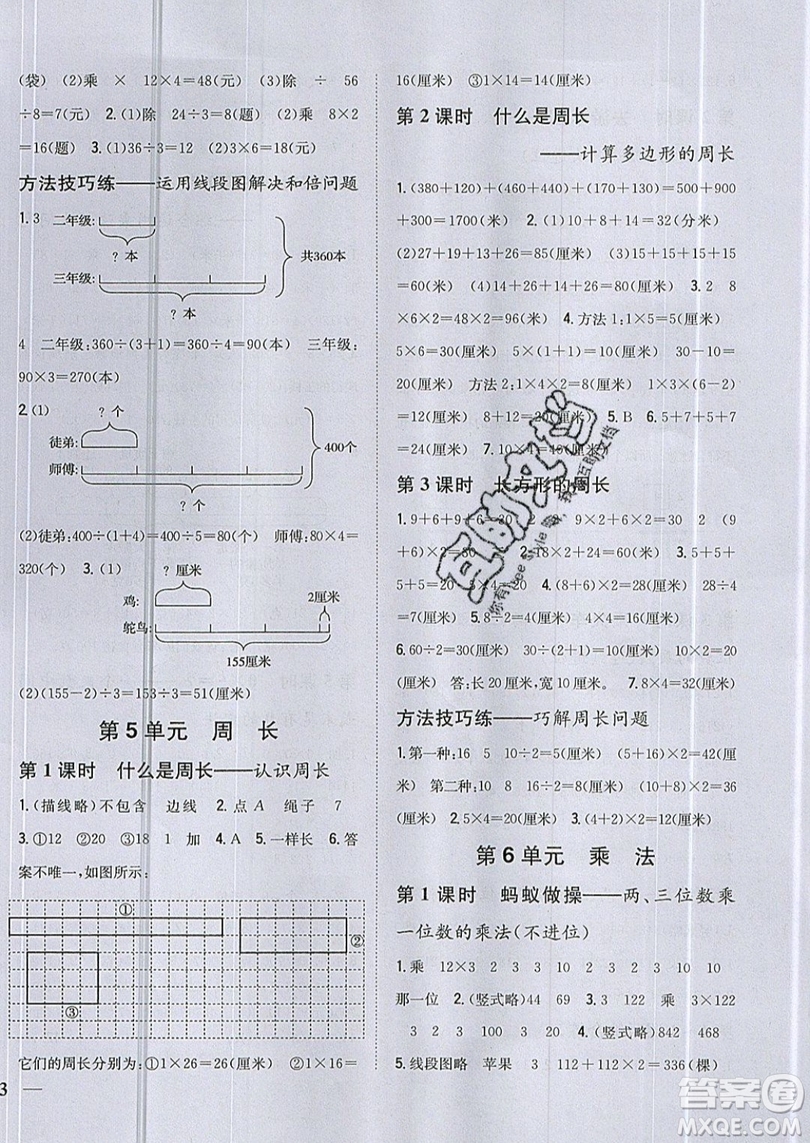 (袋)　(2)乘　×　12×4=48(元)　(3)除　÷　56
÷8=7(元)　2.(1)除　24÷8=3(题)　(2)乘　8×2
=16(题)　3.(1)36÷3=12(元)　(2)3×6=18(元)
方法技巧练——运用线段图解决和倍问题
1.3　二年级:
？本
共360本
三年级:
？本
4　二年级:360÷(3+1)=360÷4=90(本)　三年级:
90×3=270(本)
2.(1)
？个
徒弟:
400个
师傅:
？个
(2)徒弟:400÷(4+1)=400÷5=80(个)　师傅:80×4=
320(个)　3.(1)
？厘米
鸡:
2厘米
鸵鸟:
155厘米
(2)(155-2)÷3=153÷3=51(厘米)
第5单元　周　长
第1课时　什么是周长——认识周长
1.(描线略)不包含　边线　2.点A　绳子　7
3.①12　②20　③18　1　加　4.A　5.一样长　6.答
案不唯一,如图所示:
①
②
③
它们的周长分别为:①1×26=26(厘米)　②1×16=
3
16(厘米)　③1×14=14(厘米)
第2课时　什么是周长
——计算多边形的周长
1.(380+120)+(460+440)+(170+130)=500+900
+300=1700(米)　2.(1)6+8+10+8=32(分米)
(2)27+19+13+26=85(厘米)　(3)15+15+15+15
=60(厘米)　(4)14+26+14+26=80(厘米)　3.2　8
×6×2=48×2=96(厘米)　4.方法1:1×5=5(厘米)
5×6=30(厘米)　5×(1+1)=10(厘米)　30-10=
20(厘米)　方法2:1×4×2=8(厘米)　1×3×(6-2)=
12(厘米)　8+12=20(厘米)　5.B　6.5+7+5+7
=24(厘米)　7.10×4=40(厘米)
第3课时　长方形的周长
1.9+6+9+6=30(厘米)　9×2+6×2=30(厘米)　2　(9
+6)×2=30(厘米)　2.18×2+24×2=84(厘米)　3.15
×4=60(厘米)　4.(8+6)×2=28(厘米)　28÷4
=7(厘米)　5.8÷2=4(厘米)　4×4=16(厘米)
6.60÷2=30(厘米)　30÷(2+1)=10(厘米)　10×2=
20(厘米)　答:长20厘米,宽10厘米。　7.8×4=32(厘米)
方法技巧练——巧解周长问题
1.第一种:16　5　10÷2=5(厘米)　(16+5)×2=42(厘
米)　第二种:10　8　16÷2=8(厘米)　(10+8)×2=
36(厘米)　2.5×10=50(厘米)　3.(4+2)×2=12(厘米)
第6单元　乘　法
第1课时　蚂蚁做操——两、三位数乘
一位数的乘法(不进位)
1.乘　12×3　2　3　3　10　3　30　6　30　6
那一位　2.(竖式略)99　550　3.122　乘　3×122
3　2　3　100　(竖式略)　4.(竖式略)842　468
5.线段图略　苹果　3　112+112×2=336(棵)
答案圈
MXQE.COM